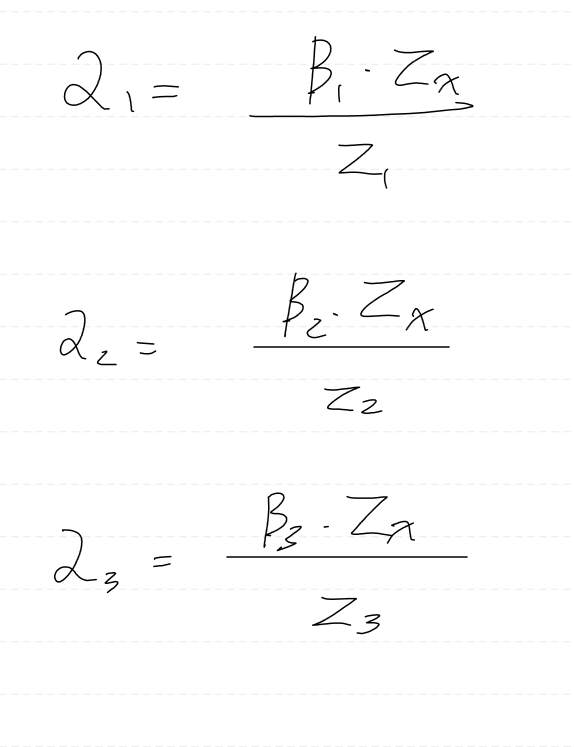 α₁ = β₁ · Zₓ / Z₁
α₂ = β₂ · Zₓ / Z₂
α₃ = β₃ · Zₓ / Z₃